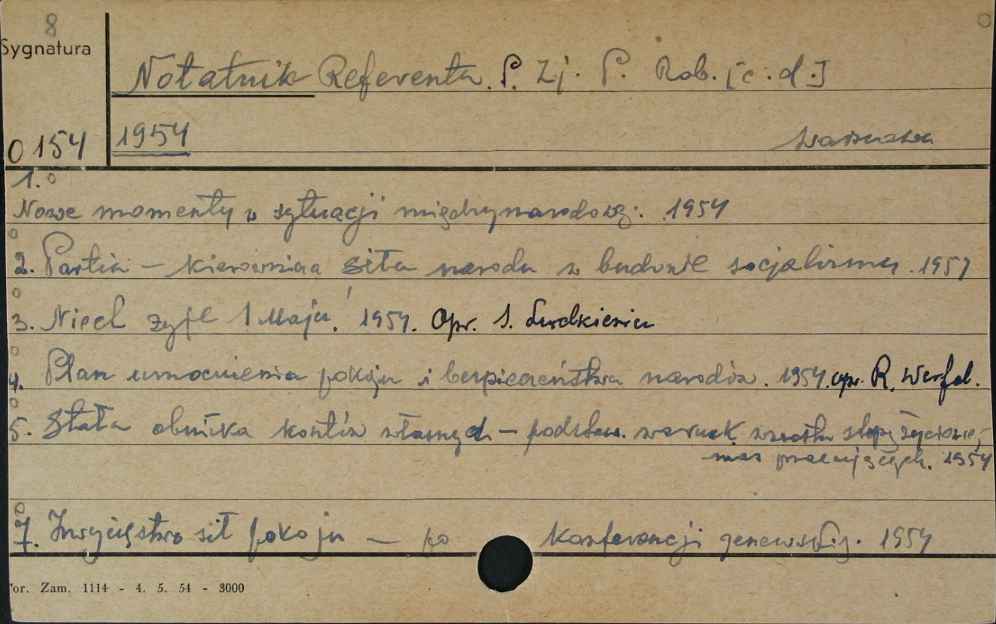 8
Sygnatura
Notatnik Referenta. P. Zj. P. Rob. [c.d.]
O 154
1954 Warszawa
1.
Nowe momenty w sytuacji międzynarodowej. 1954
2. Partia – kierownicza siła narodu w budowie socjalizmu. 1954
3. Niech żyje 1 Maja! 1954. Opr. S. Ludkiewicz
4. Plan umocnienia pokoju i bezpieczeństwa narodów. 1954. opr. R. Werfel.
5. Stała obniżka kosztów własnych – podstaw. warunk. wzrostu stopy życiowej
mas pracujących. 1954
7. Zwycięstwo sił pokoju – po konferencji genewskiej. 1954
or. Zam. 1114 - 4. 5. 54 - 3000